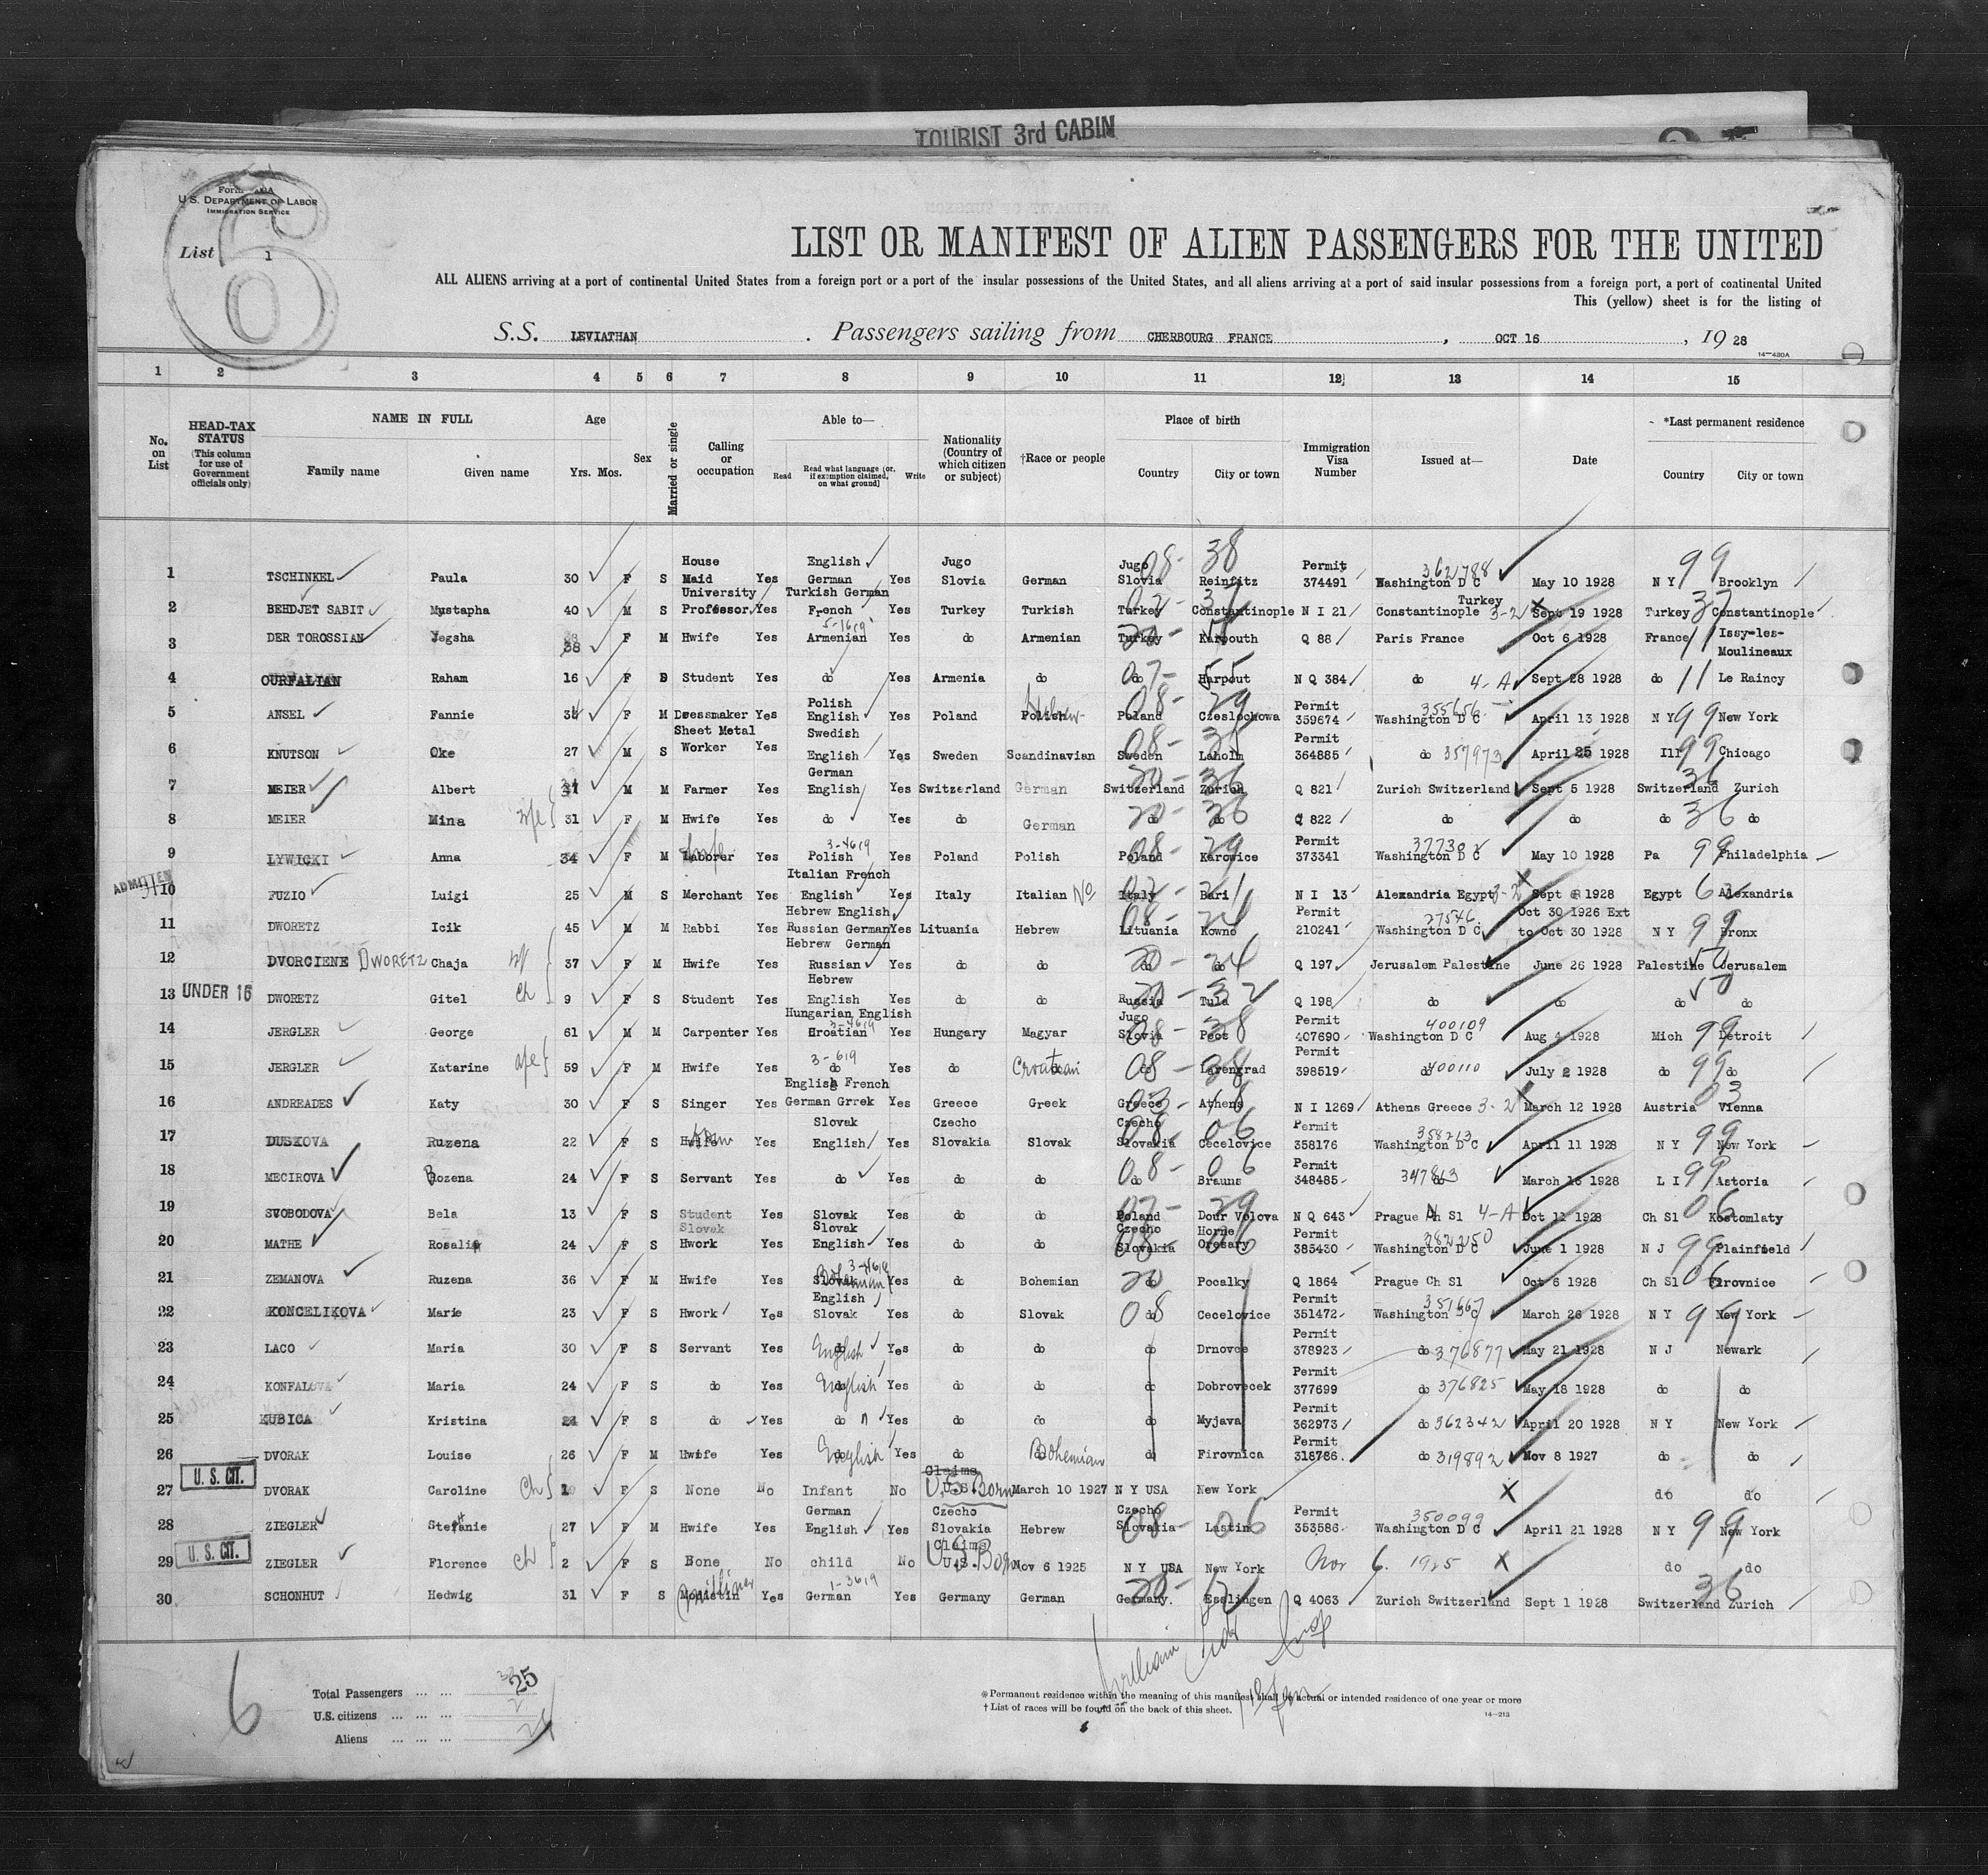 TOURIST 3rd CABIN
U. S. DEPARTMENT OF LABOR
IMMIGRATION SERVICE
6
List 1
LIST OR MANIFEST OF ALIEN PASSENGERS FOR THE UNITED
ALL ALIENS arriving at a port of continental United States from a foreign port or a port of the insular possessions of the United States, and all aliens arriving at a port of said insular possessions from a foreign port, a port of continental United
This (yellow) sheet is for the listing of
S.S. LEVIATHAN . Passengers sailing from CHERBOURG FRANCE , OCT 16 , 19 28
14—430A
1 2 3 4 5 6 7 8 9 10 11 12 13 14 15
No. on List
HEAD-TAX STATUS (This column for use of Government officials only)
NAME IN FULL Family name Given name
Age Yrs. Mos.
Sex
Married or single
Calling or occupation
Able to— Read Read what language (or, if exemption claimed, on what ground) Write
Nationality (Country of which citizen or subject)
†Race or people
Place of birth Country City or town
Immigration Visa Number
Issued at—
Date
*Last permanent residence Country City or town
1 TSCHINKEL Paula 30 F S House Maid Yes English German Yes Jugo Slovia German Jugo Slovia Reinfitz 08- 38 Permit 374491 Washington D C 362788 May 10 1928 N Y 99 Brooklyn
2 BEHDJET SABIT Mustapha 40 M S University Professor Yes Turkish German French Yes Turkey Turkish Turkey Constantinople N I 21 Constantinople Turkey 3-2 Sept 19 1928 Turkey 37 Constantinople
3 DER TOROSSIAN Yegsha 38 F M Hwife Yes Armenian Yes do Armenian Turkey Karpouth Q 88 Paris France Oct 6 1928 France 11 Issy-les-Moulineaux
4 OURFALIAN Raham 16 F S Student Yes do Yes Armenia do do Harpout 07- 55 N Q 384 do 4-A Sept 28 1928 do 11 Le Raincy
5 ANSEL Fannie F M Dressmaker Yes Polish English Yes Poland Polish Hebrew Poland Czeslochowa 08- 29 Permit 359674 Washington D C 355656 April 13 1928 N Y 99 New York
6 KNUTSON Oke 27 M S Sheet Metal Worker Yes Swedish English Yes Sweden Scandinavian Sweden Laholm 08- 35 Permit 364885 do 357973 April 25 1928 Ill 99 Chicago
7 MEIER Albert M M Farmer Yes German English Yes Switzerland German Switzerland Zurich 20- 36 Q 821 Zurich Switzerland Sept 5 1928 Switzerland 36 Zurich
8 MEIER Mina wfe 31 F M Hwife Yes do Yes do German do do 20- 36 Q 822 do do do 36 do
9 LYWICKI Anna 34 F M Laborer Yes Polish 3-4619 Yes Poland Polish Poland Karowice 08- 29 Permit 373341 Washington D C May 10 1928 Pa 99 Philadelphia
ADMITTED
10 FUZIO Luigi 25 M S Merchant Yes Italian French English Yes Italy Italian No Italy Bari 02- 21 N I 13 Alexandria Egypt 3-2 Sept 1928 Egypt Alexandria
11 DWORETZ Icik 45 M M Rabbi Yes Hebrew English Russian German Yes Lituania Hebrew Lituania Kowno 08- 24 Permit 210241 Washington D C 27546 Oct 30 1926 Ext to Oct 30 1928 N Y 99 Bronx
12 DVORCIENE DWORETZ Chaja wf 37 F M Hwife Yes Hebrew German Russian Yes do do do do 20- 24 Q 197 Jerusalem Palestine June 26 1928 Palestine 50 Jerusalem
13 UNDER 16 DWORETZ Gitel ch 9 F S Student Yes Hebrew English Yes do do Russia Tula 20- 32 Q 198 do do do 50 do
14 JERGLER George 61 M M Carpenter Yes Hungarian English Croatian 3-4619 Yes Hungary Magyar Jugo Slovia Pect 08- 38 Permit 407690 Washington D C 400109 Aug 4 1928 Mich 99 Detroit
15 JERGLER Katarine wfe 59 F M Hwife Yes do 3-619 Yes do Croatian do Lavengrad 08- 38 Permit 398519 do 400110 July 2 1928 do 99 do
16 ANDREADES Katy 30 F S Singer Yes English French German Grrek Yes Greece Greek Greece Athens 03- 18 N I 1269 Athens Greece 3-2 March 12 1928 Austria 03 Vienna
17 DUSKOVA Ruzena 22 F S Hwife Yes Slovak English Yes Czecho Slovakia Slovak Czecho Slovakia Cecelovice 08- 06 Permit 358176 Washington D C 358213 April 11 1928 N Y 99 New York
18 MECIROVA Rozena 24 F S Servant Yes do Yes do do do Brauns 08- 06 Permit 348485 do 347813 March 16 1928 L I 99 Astoria
19 SVOBODOVA Bela 13 F S Student Yes Slovak Yes do do Poland Dour Volova 07- 29 N Q 643 Prague Ch Sl 4-A Oct 11 1928 Ch Sl 06 Kostomlaty
20 MATHE Rosalia 24 F S Hwork Yes Slovak English Yes do do Czecho Slovakia Horne Oresary 08- 06 Permit 385430 Washington D C 382250 June 1 1928 N J 99 Plainfield
21 ZEMANOVA Ruzena 36 F M Hwife Yes Slovak Bohemian 3-4619 Yes do Bohemian do Pocalky 20 Q 1864 Prague Ch Sl Oct 6 1928 Ch Sl 06 Firovnice
22 KONCELIKOVA Marie 23 F S Hwork Yes English Slovak Yes do Slovak do Cecelovice 08 Permit 351472 Washington D C 351667 March 26 1928 N Y 99 New York
23 LACO Maria 30 F S Servant Yes do English Yes do do do Drnovce Permit 378923 do 376877 May 21 1928 N J Newark
24 KONFALOVA Maria 24 F S do Yes do English Yes do do do Dobrovecek Permit 377699 do 376825 May 18 1928 do do
25 KUBICA Kristina 24 F S do Yes do " Yes do do do Myjava Permit 362973 do 362342 April 20 1928 N Y New York
26 DVORAK Louise 26 F M Hwife Yes do English Yes do do Bohemian do Firovnica Permit 318786 do 319892 Nov 8 1927 do do
U. S. CIT.
27 DVORAK Caroline ch 1 F S None No Infant No Claims U.S. U.S. Born March 10 1927 N Y USA New York X do do
28 ZIEGLER Stefanie 27 F M Hwife Yes German English Yes Czecho Slovakia Hebrew Czecho Slovakia Lastin 08- 06 Permit 353586 Washington D C 350099 April 21 1928 N Y 99 New York
U. S. CIT.
29 ZIEGLER Florence ch 2 F S None No child No Claims U.S. U.S. Born Nov 6 1925 N Y USA New York Nov 6. 1925 X do do
30 SCHONHUT Hedwig 31 F S Modistin Milliner Yes German 1-3619 Yes Germany German Germany Esslingen 20- 12 Q 4063 Zurich Switzerland Sept 1 1928 Switzerland 36 Zurich
6
Total Passengers ... ... 25
U.S. citizens ... ... ... 2
Aliens ... ... ...
William
* Permanent residence within the meaning of this manifest shall be actual or intended residence of one year or more
† List of races will be found on the back of this sheet.
14—213